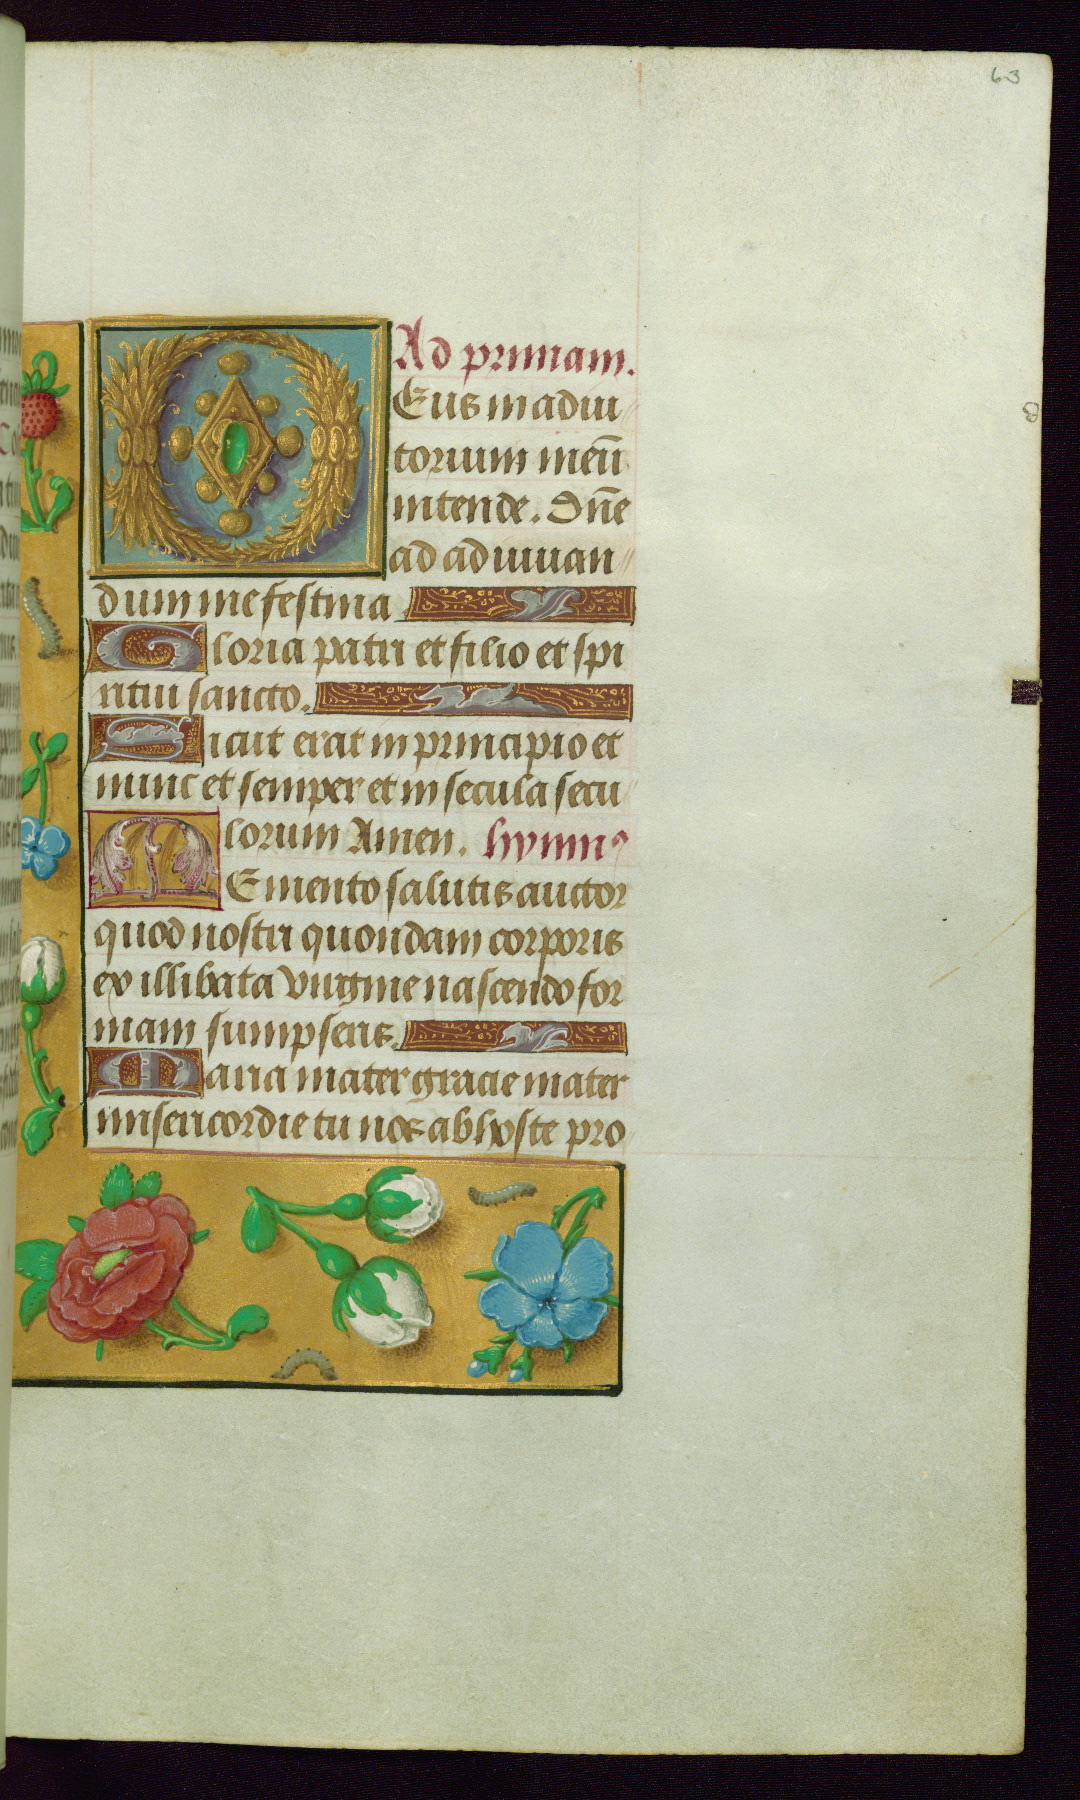 63
Ad primam.
DEus in adiu
torium meū
intende. Dn̄e
ad adiuuan
dum me festina.
Gloria patri et filio et spi
ritui sancto.
Sicut erat in principio et
nunc et semper et in secula secu
lorum Amen. hymnꝰ
MEmento salutis auctor
quod nostri quondam corporis
ex illibata virgine nascendo for
mam sumpseris.
Maria mater gracie mater
misericordie tu nos ab hoste pro